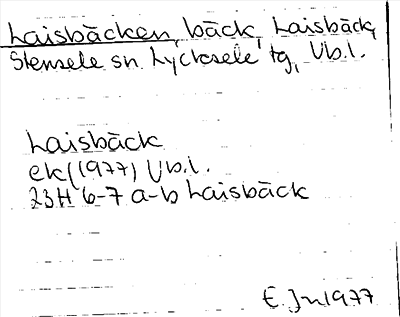 Laisbäcken, bäck, Laisbäck,
Stensele sn. Lycksele tg, Vb.l.
Laisbäck
ek (1977) Vb.l.
23H 6-7 a-b Laisbäck
E. Jn 1977